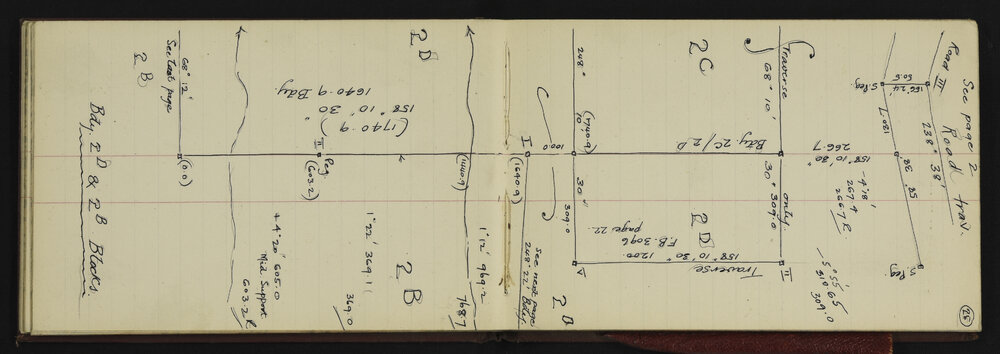 See page 2
25
Road trav.
Road III
238° 38'
156° 24'
50.5
S. Peg.
S. Peg.
120.7
266.7
158° 10' 30"
-4° 18'
267.4
266.7 R
5° 55' 65
309.0
Traverse
68° 10'
only.
30" 309.0
Bdy 2C/2D
II
Traverse
158° 10' 30" 1200
V
2C
2D
F.B. 3096
page 22.
248°
10'
30"
(1740.9)
309.0
100.0
I
(1640.9)
See next page
248° 22' Bdy.
2D
(1440.9)
1° 12' 969.2
768.7
2D
(1740.9
158° 10' 30"
1640.9 Bdy
II
Peg.
(603.2)
2B
1° 22' 369.1
369.0
+4° 20' 605.0
Mid Support
603.2 R
68° 12'
See last page
(0.0)
2B
Bdy. 2D & 2B Blocks.